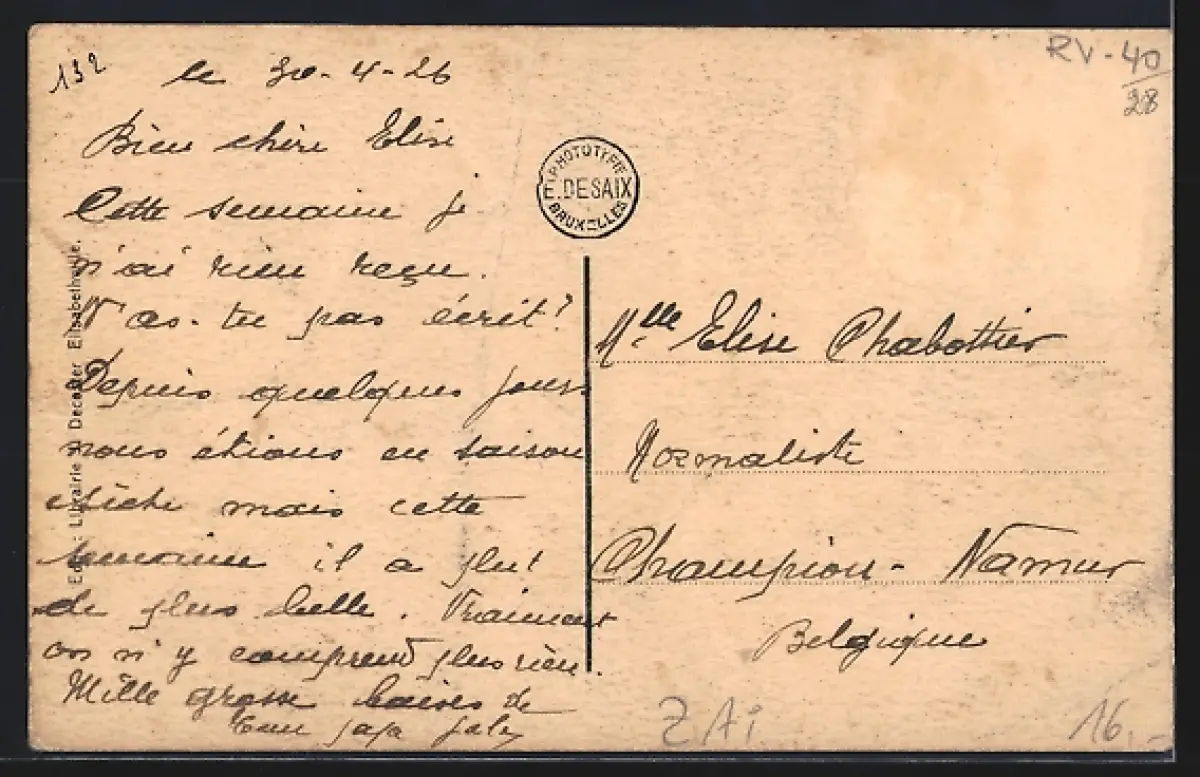 132
le 30-4-26
Bien chère Elise
Cette semaine je
n'ai rien reçu.
N'as-tu pas écrit?
Depuis quelques jours
nous étions en saison
sèche mais cette
semaine il a plu!
de plus belle. Vraiment
on n'y comprend plus rien.
Mille grosse baises de
ton papa
PHOTOTYPIE
E. DESAIX
BRUXELLES
Edit.: Librairie Decoster Elisabethville.
RV-40/28
Mlle Elise Chabottier
Normaliste
Champion - Namur
Belgique
ZAi
16.-